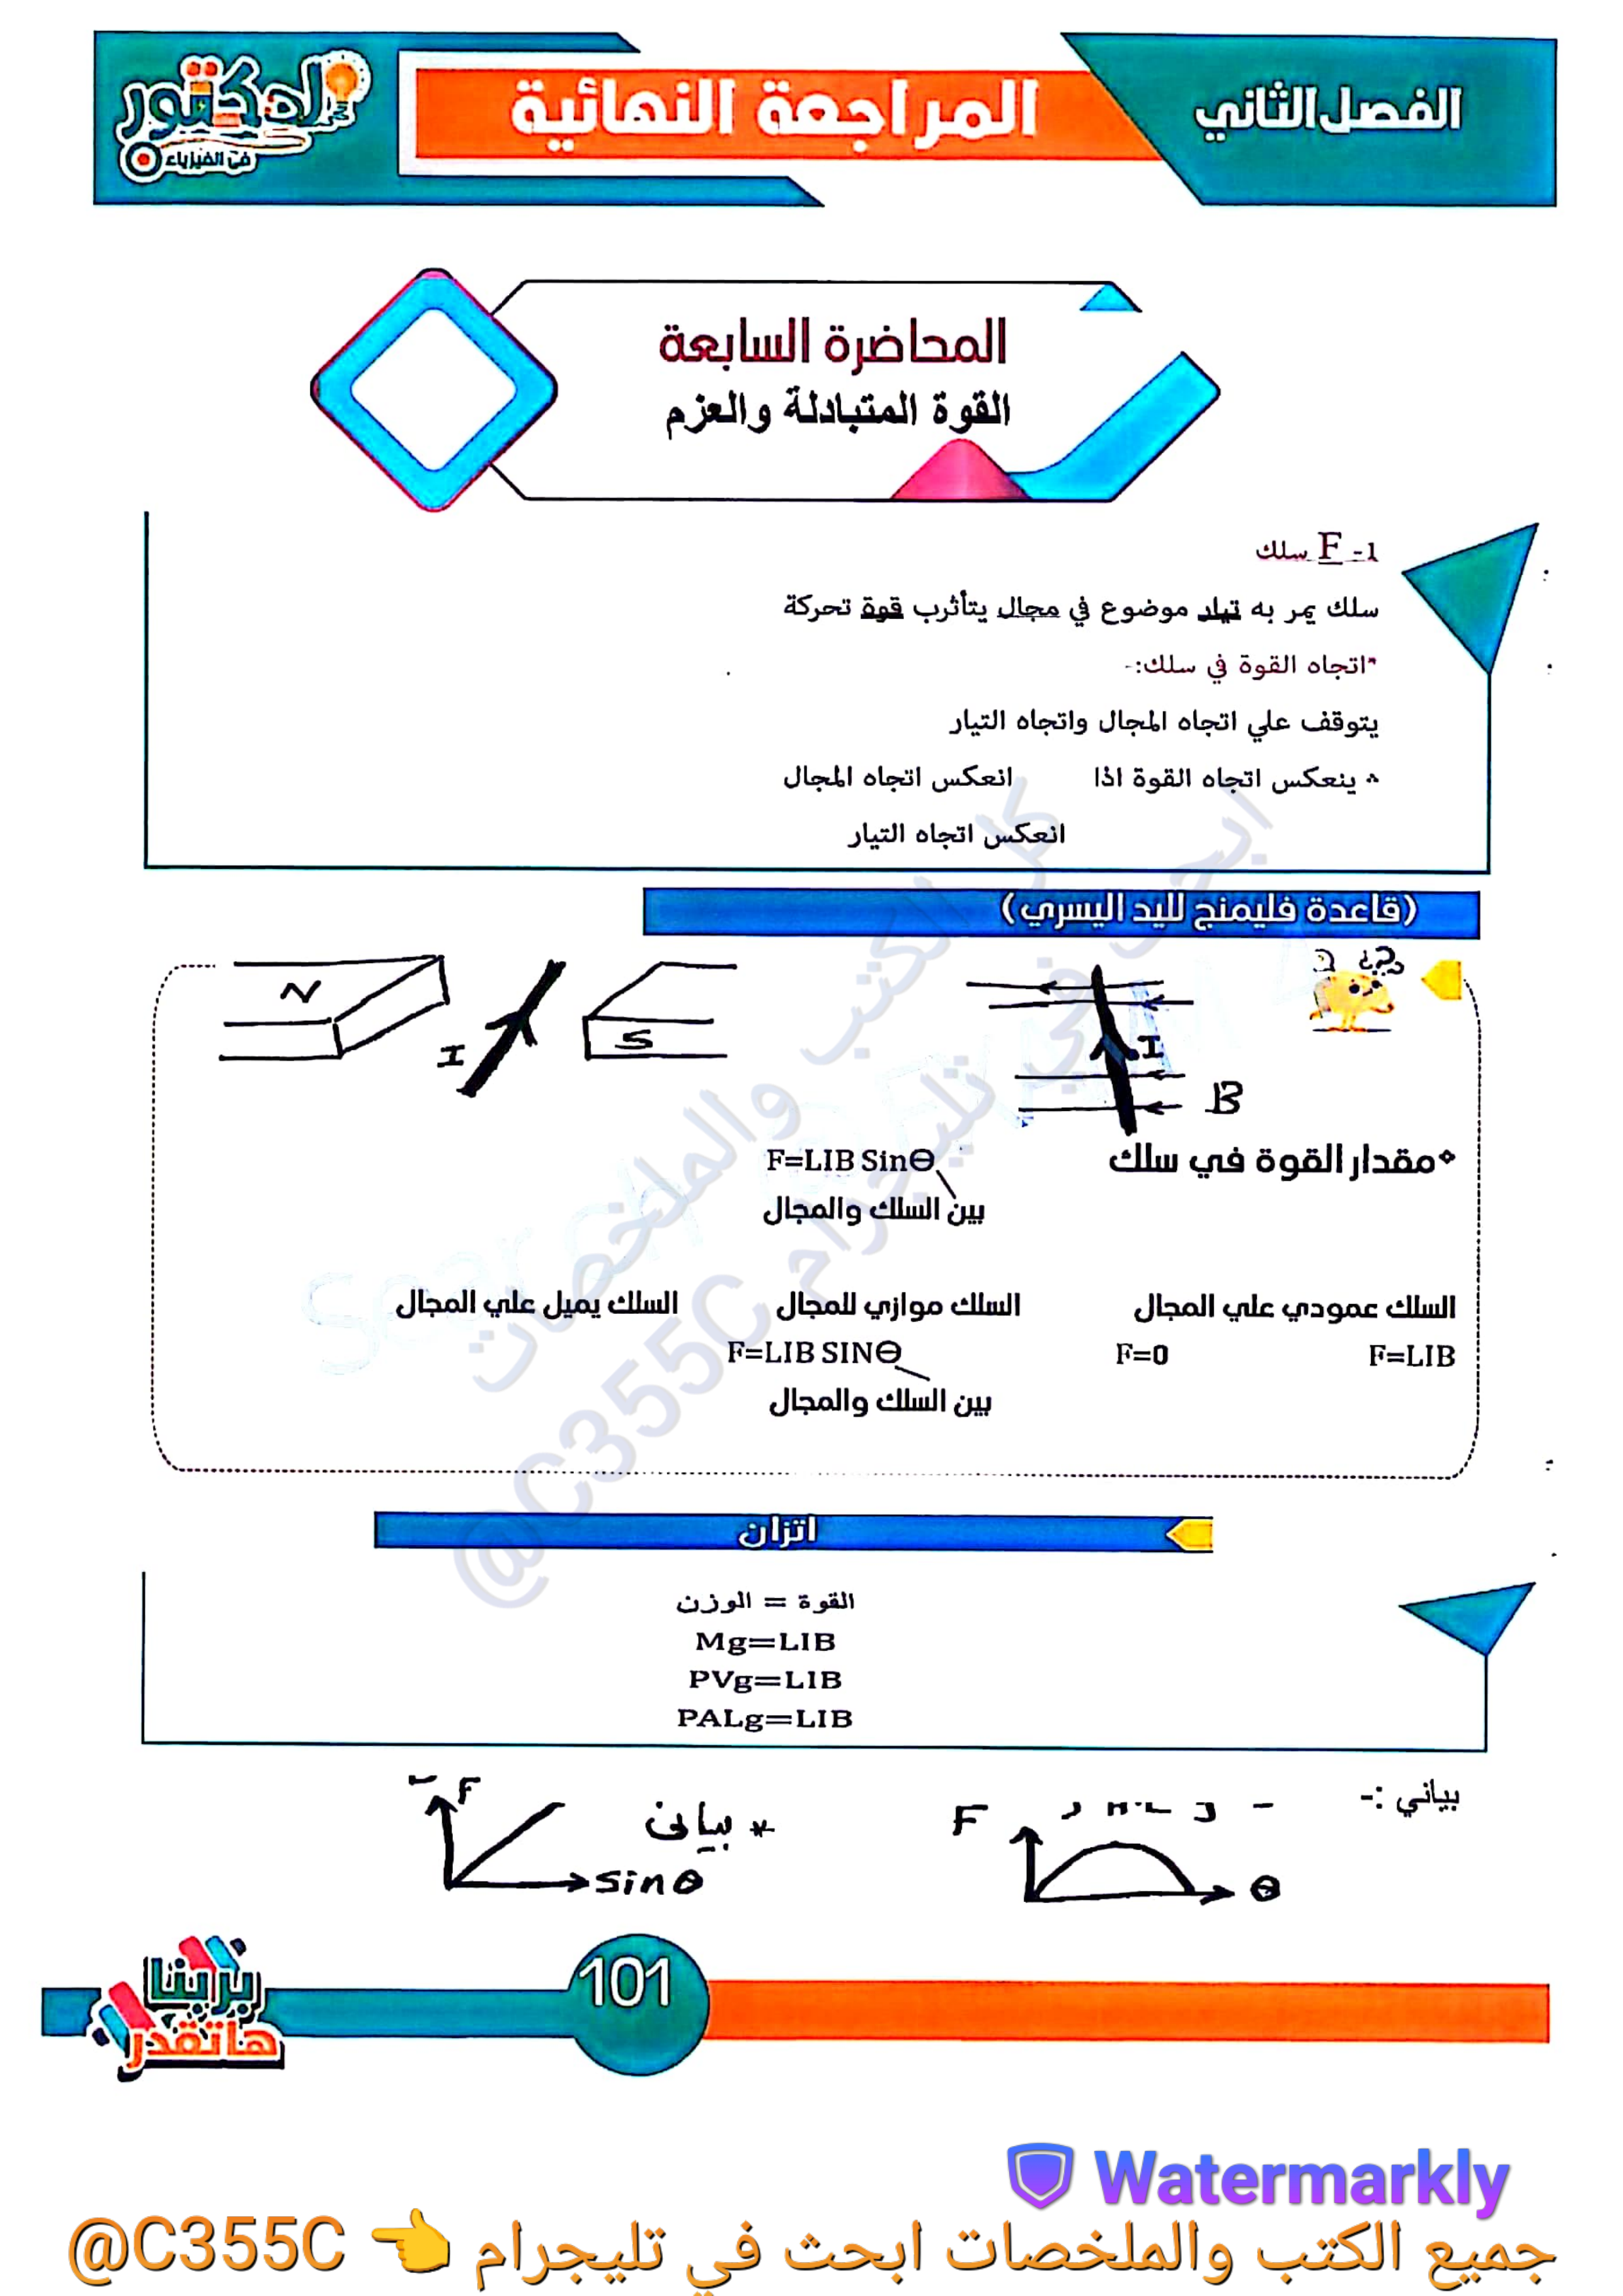 الفصل الثاني
المراجعة النهائية
الدكتور
في الفيزياء
المحاضرة السابعة
القوة المتبادلة والعزم
1- F سلك
سلك يمر به تيار موضوع في مجال يتأثرب قوة تحركة
*اتجاه القوة في سلك:-
يتوقف علي اتجاه المجال واتجاه التيار
ينعكس اتجاه القوة اذا انعكس اتجاه المجال
انعكس اتجاه التيار
(قاعدة فليمنج لليد اليسري)
N
I
S
I
B
مقدار القوة في سلك F=LIB Sinθ
بين السلك والمجال
السلك عمودي علي المجال السلك موازي للمجال السلك يميل علي المجال
F=LIB F=0 F=LIB SINθ
بين السلك والمجال
اتزان
القوة = الوزن
Mg=LIB
PVg=LIB
PALg=LIB
بياني :-
F
θ
* بيانى
F
sinθ
101
برايتنا
هاتقدر
كل الكتب والملخصات
ابحث في تليجرام
@C355C
Watermarkly
جميع الكتب والملخصات ابحث في تليجرام 👈 @C355C